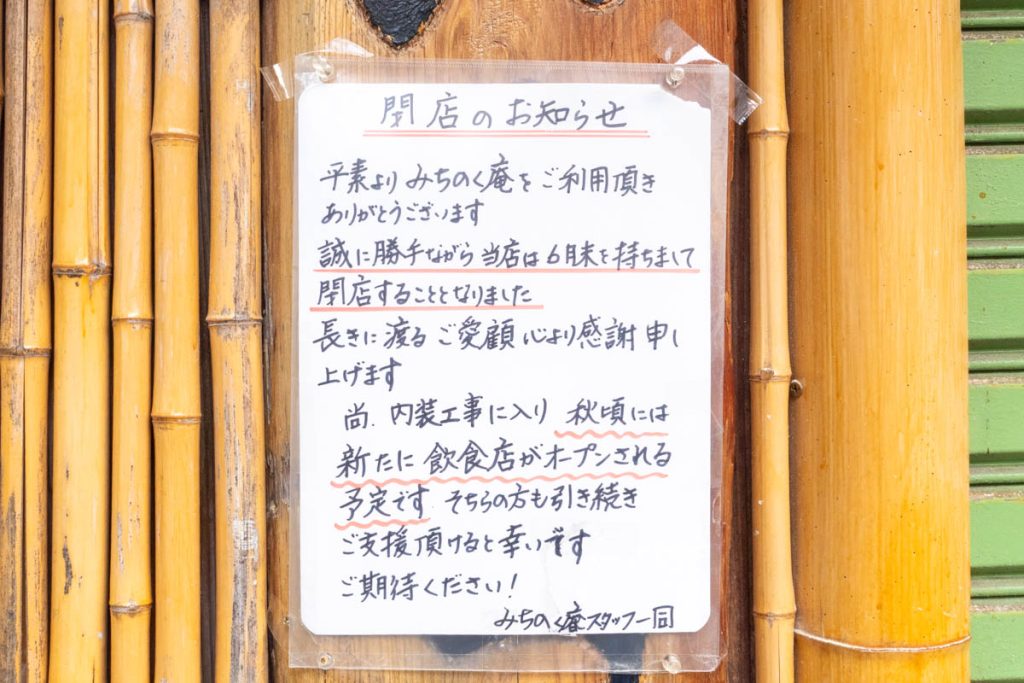 閉店のお知らせ
平素よりみちのく庵をご利用頂き
ありがとうございます
誠に勝手ながら当店は6月末を持ちまして
閉店することとなりました
長きに渡るご愛顧心より感謝申し
上げます
尚、内装工事に入り秋頃には
新たに飲食店がオープンされる
予定です そちらの方も引き続き
ご支援頂けると幸いです
ご期待ください!
みちのく庵スタッフ一同